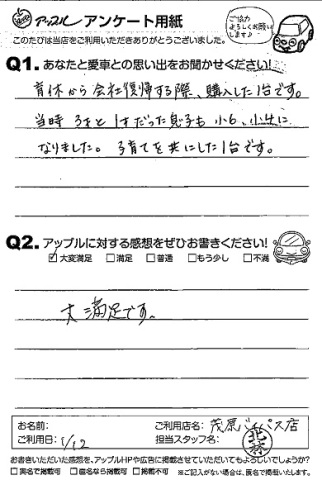 アップル アンケート用紙
ご協力
よろしくお願い
します♪
このたびは当店をご利用いただきありがとうございました。
Q1. あなたと愛車との思い出をお聞かせください!
育休から会社復帰する際、購入した1台です。
当時 3才と1才だった息子も 小6、小4に
なりました。 子育てを共にした1台です。
Q2. アップルに対する感想をぜひお書きください!
☑大変満足 □満足 □普通 □もう少し □不満
大満足です。
お名前: ご利用店名: 茂原バイパス店
ご利用日: 1/12 担当スタッフ名: 北村
お書きいただいた感想を、アップルHPや広告に掲載させていただいてもよろしいでしょうか?
□実名で掲載可 □匿名なら掲載可 □掲載不可 ※ご記入がない場合は、匿名で掲載いたします。